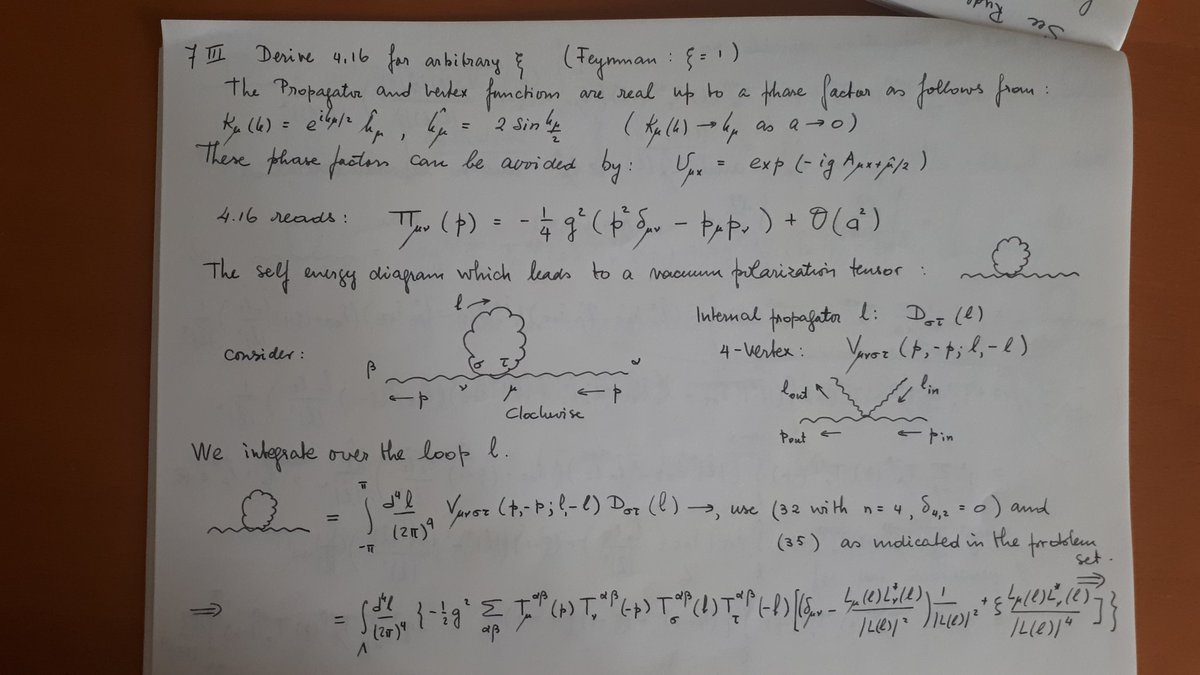 See Ryde
7 III Derive 4.16 for arbitrary ξ (Feynman : ξ = 1)
The Propagator and vertex functions are real up to a phase factor as follows from :
K_μ(k) = e^{ik_μ/2} k̂_μ , k̂_μ = 2 Sin k_μ/2 ( K_μ(k) → k_μ as a → 0)
These phase factors can be avoided by : U_{μx} = exp (- ig A_{μx+μ̂/2})
4.16 reads : Π_{μν}(p) = - 1/4 g² (p² δ_{μν} - p_μ p_ν) + O(a²)
The self energy diagram which leads to a vacuum polarization tensor :
l
Internal propagator l : D_{στ}(l)
consider :
4-Vertex : V_{μνστ}(p,-p; l,-l)
β σ τ α
ν μ
← p ← p
Clockwise
l_out l_in
p_out ← ← p_in
We integrate over the loop l.
= ∫_{-π}^{π} d⁴l/(2π)⁴ V_{μνστ}(p,-p; l,-l) D_{στ}(l) →, use (32 with n = 4 , δ_{4,2} = 0) and
(35) as indicated in the problem set.
⇒ = ∫_Λ d⁴l/(2π)⁴ { - 1/2 g² Σ_{αβ} T_μ^{αβ}(p) T_ν^{αβ}(-p) T_σ^{αβ}(l) T_τ^{αβ}(-l) [(δ_{μν} - L_μ(l)L*_ν(l)/|L(l)|²) 1/|L(l)|² + ξ L_μ(l)L*_ν(l)/|L(l)|⁴ ] } ⇒